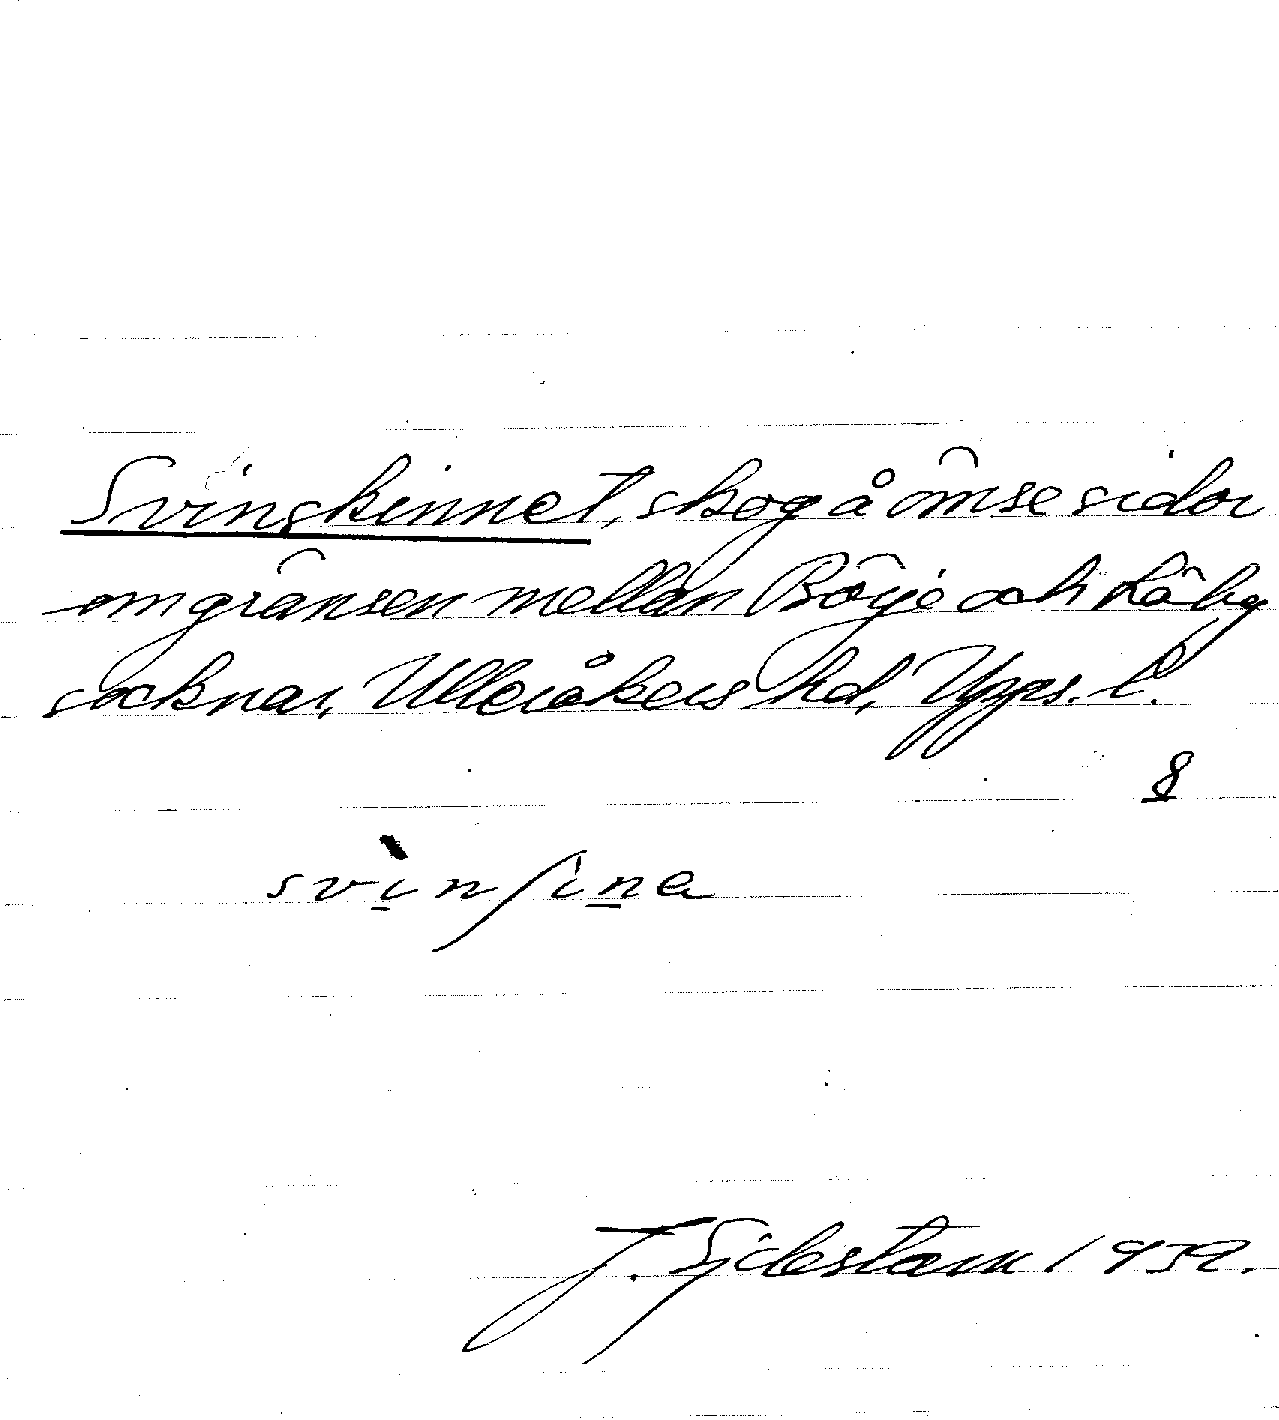 Svinskinnet, skog å ömse sidor
om gränsen mellan Börje och Läby
socknar, Ulleråkers hd, Upps. l.
8
svinʃina
1952.